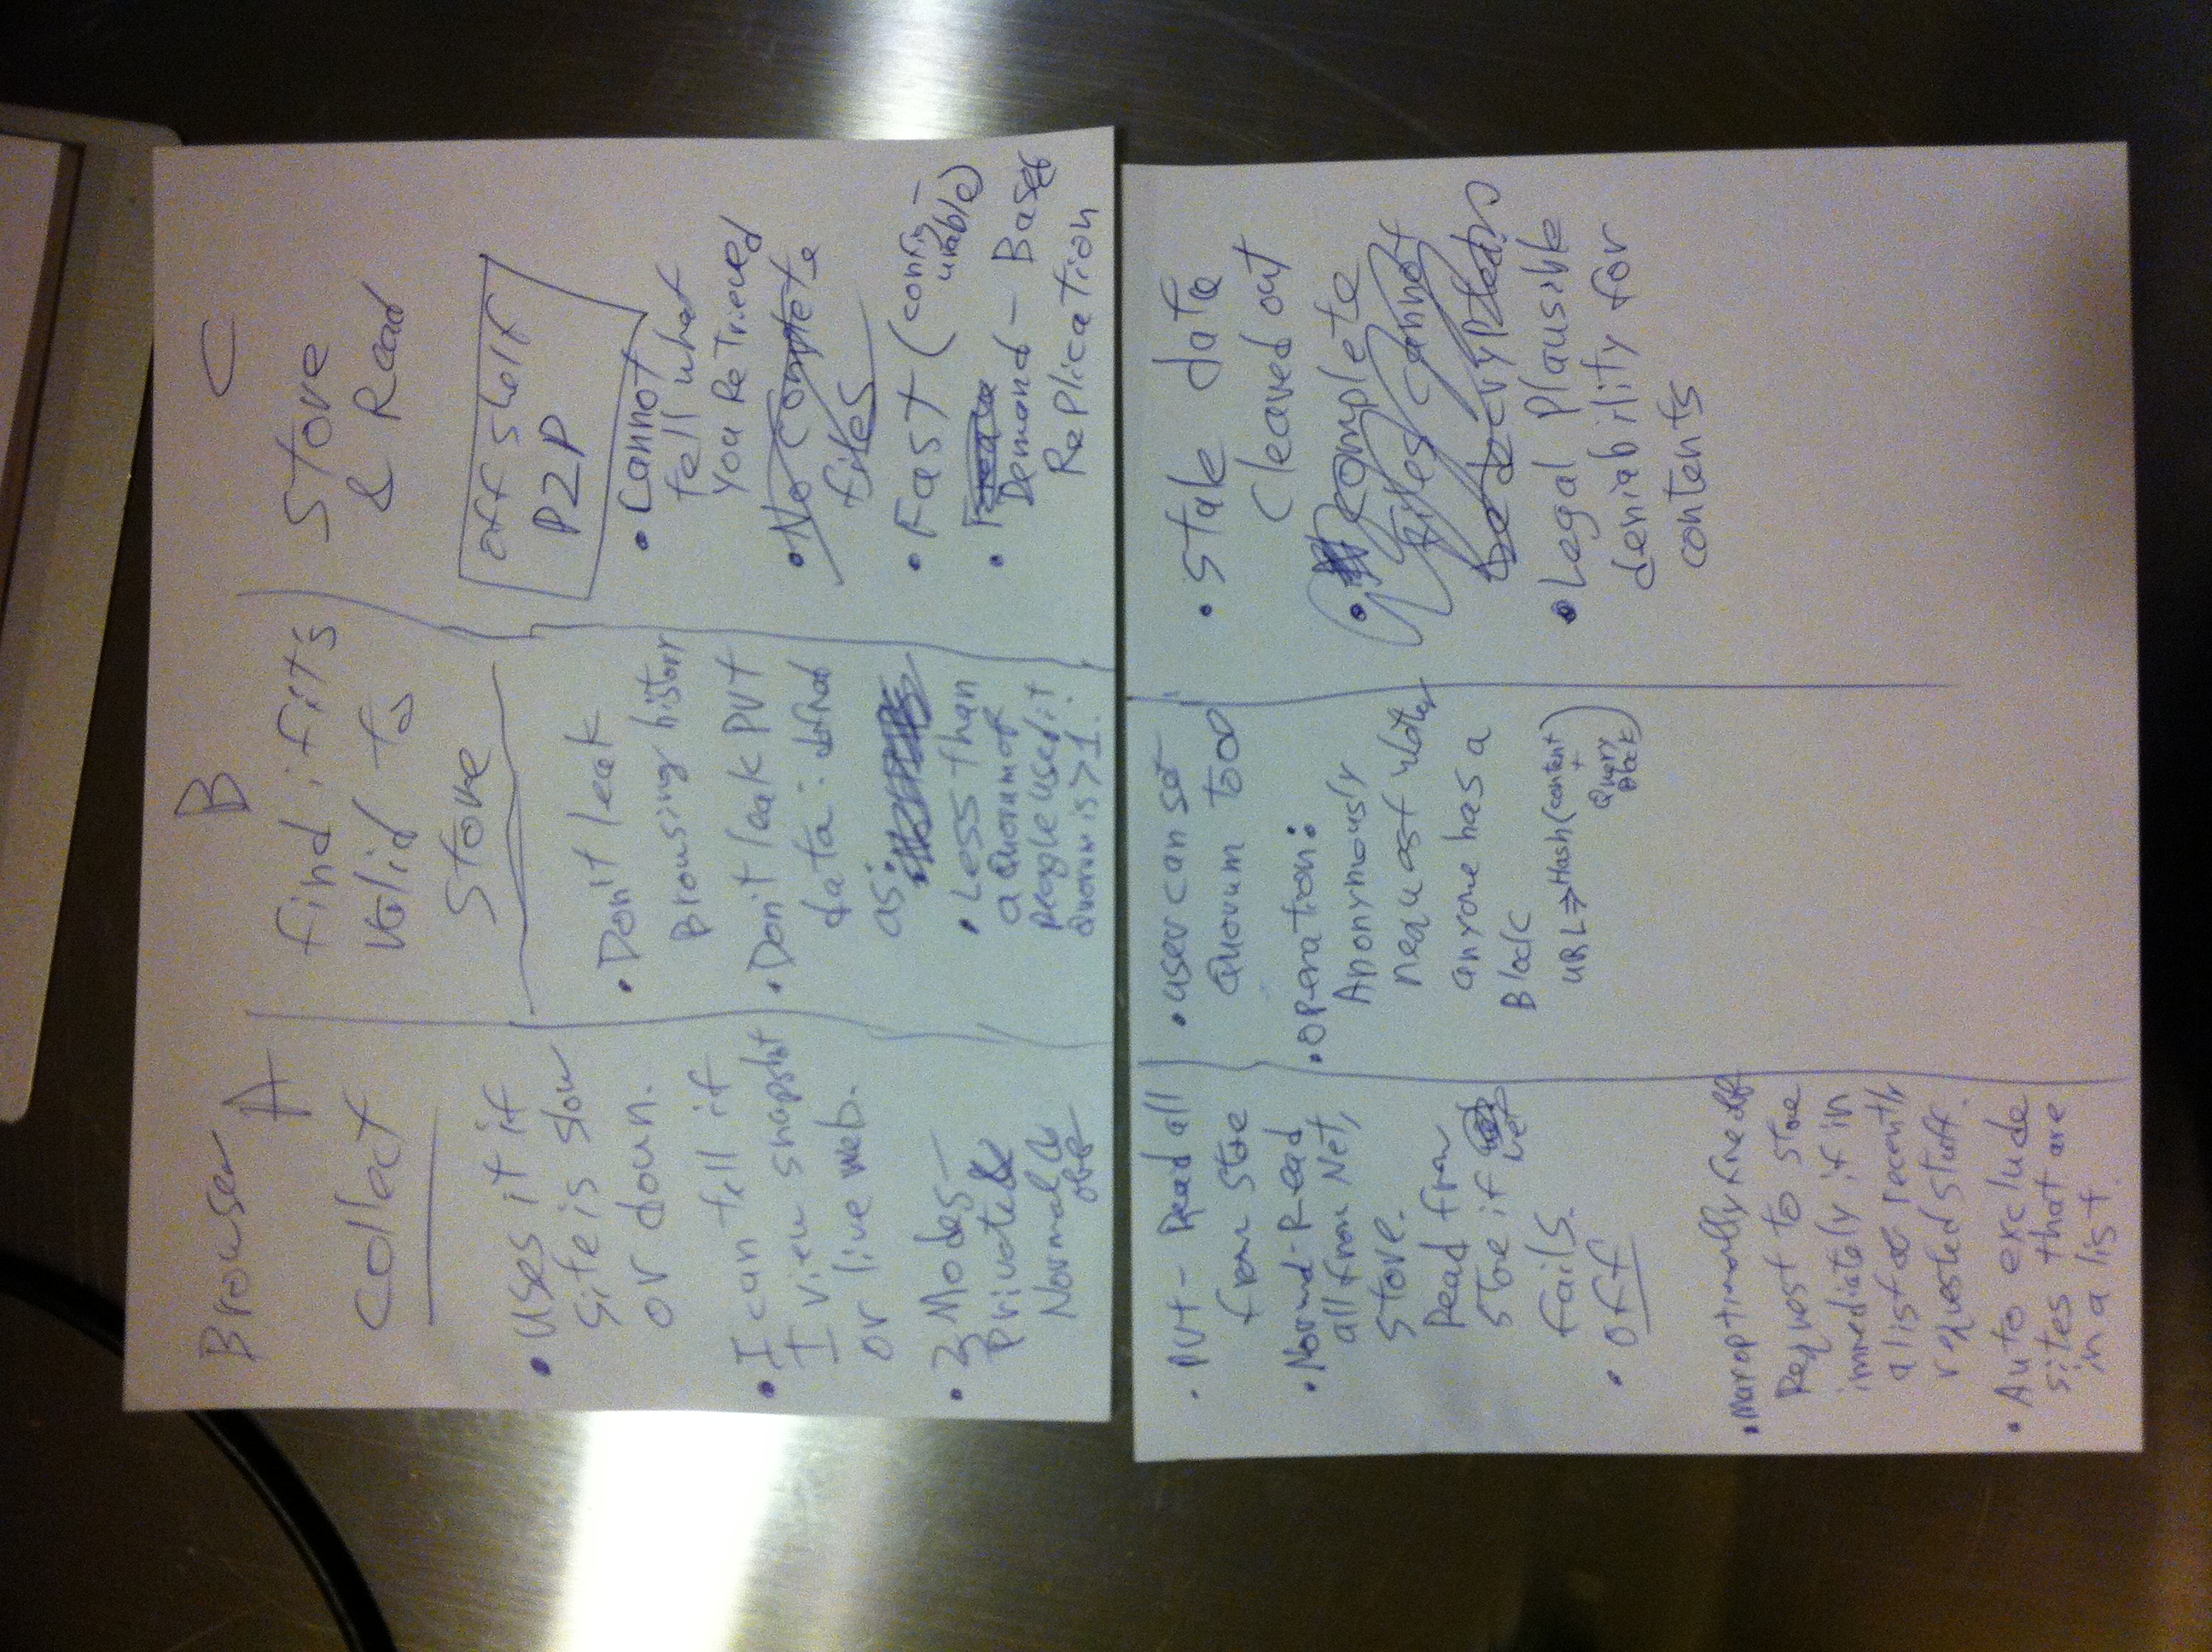 Browser
A
Collect
• uses it if
site is slow
or down.
• I can tell if
I view snapshot
or live web.
• 2 Modes –
Private &
Normal &
off
B
find if it's
valid to
store
• Don't leak
Browsing history
• Don't leak PVT
data: defined
as:
• Less than
a Quorum of
people used it
Quorum is >1.
C
Store
& Read
off shelf
P2P
• Cannot
tell what
you Retrieved
• No complete
files
• Fast (config-
urable)
• Demand - Based
Replication
• PVT - Read all
from store
• Normal - Read
all from Net,
store.
Read from
store if
Net
fails.
• Off
• May optionally fire off
Request to store
immediately if in
a list of recently
requested stuff.
• Auto exclude
sites that are
in a list.
• user can set
Quorum to ∞
• operation:
Anonymously
request whether
anyone has a
Block
URL ⇒ Hash (content
+
Query
Block)
• Stale data
Cleared out
• complete
files cannot
be decrypted
• Legal Plausible
deniability for
contents